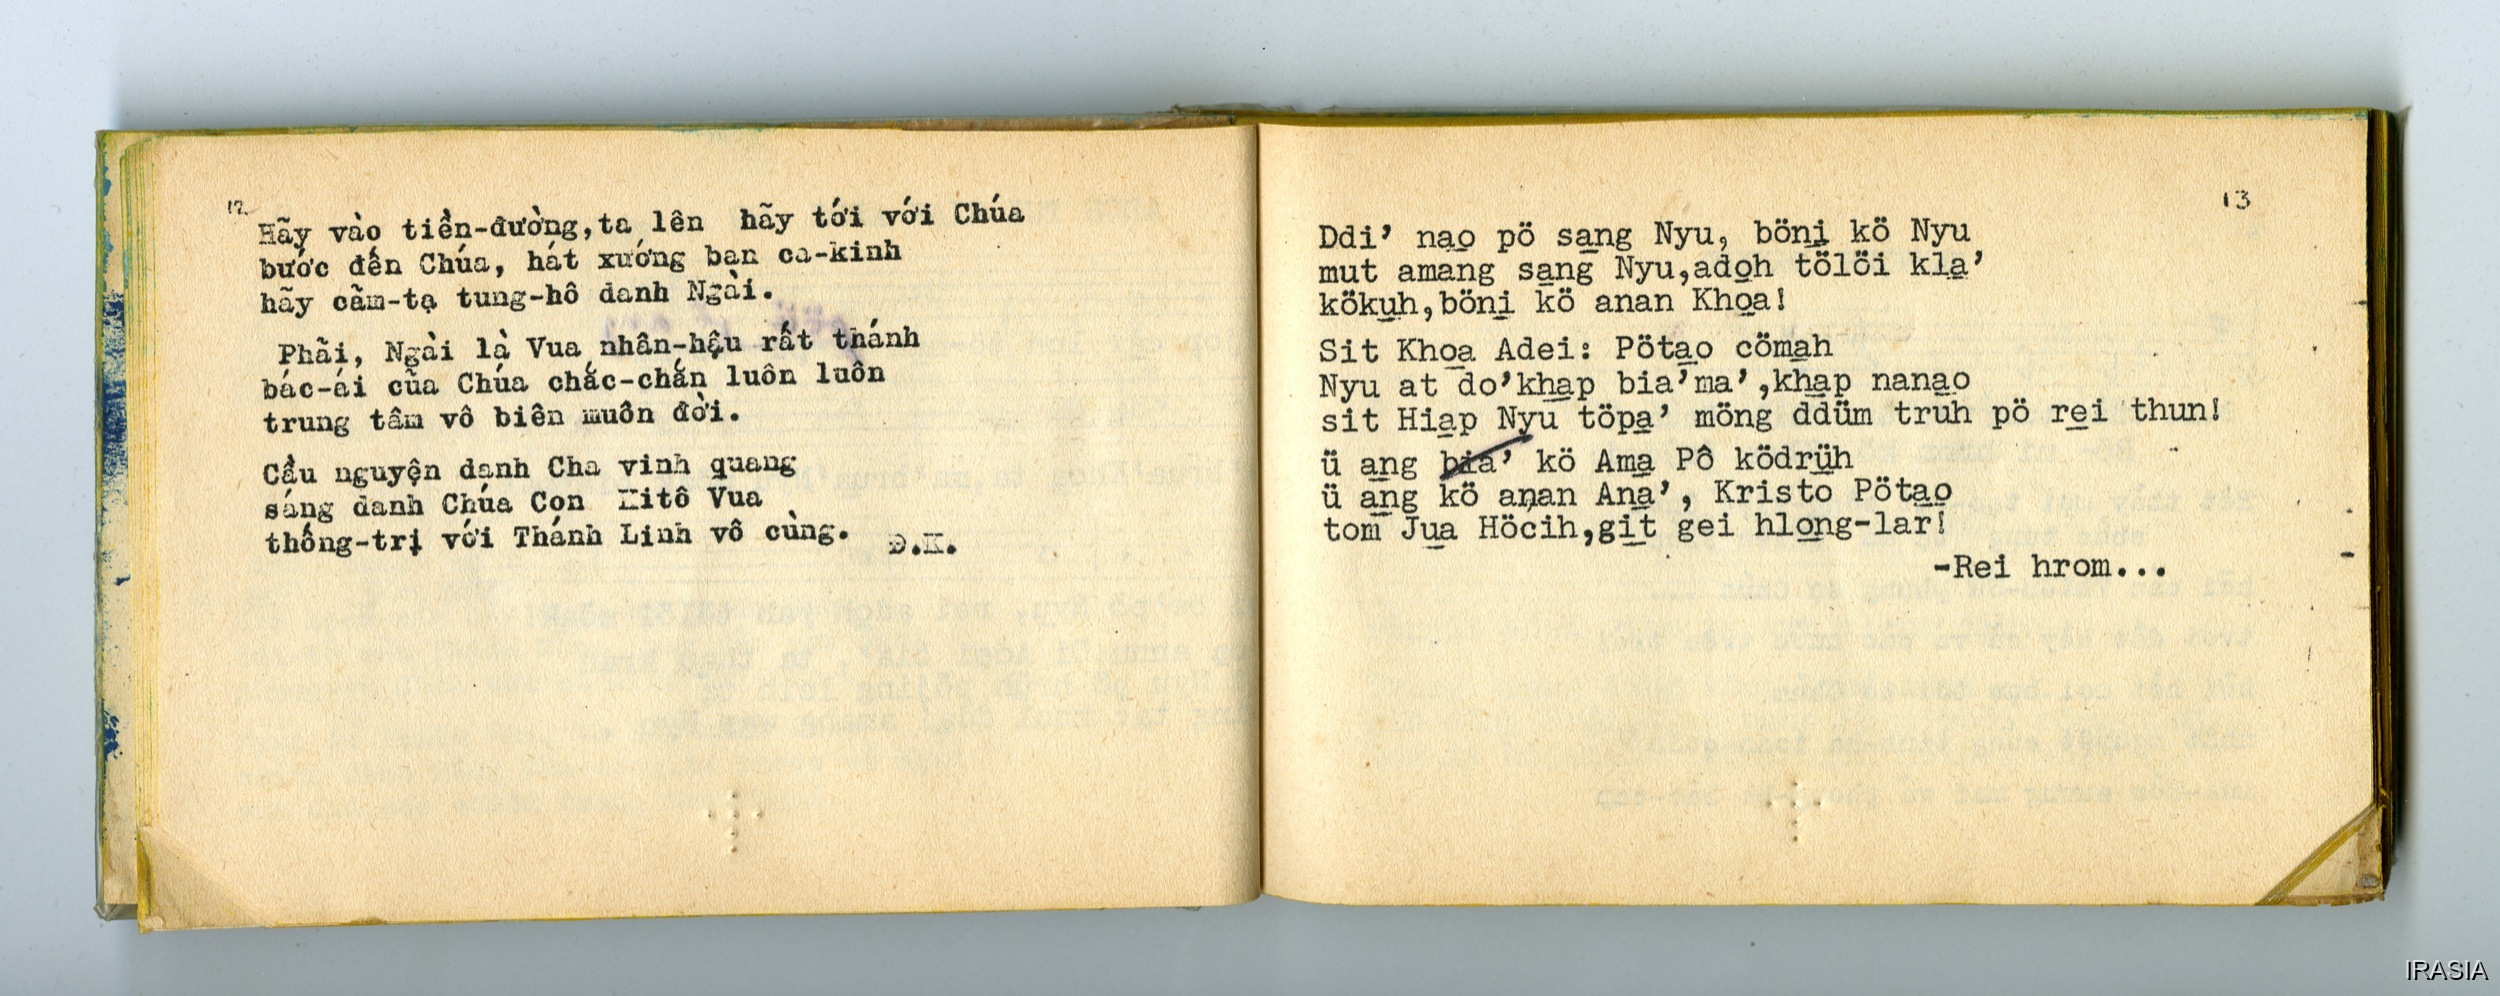 12
Hãy vào tiền-đường,ta lên hãy tới với Chúa
bước đến Chúa, hát xướng bạn ca-kinh
hãy cảm-tạ tung-hô danh Ngài.
Phải, Ngài là Vua nhân-hậu rất thánh
bác-ái của Chúa chắc-chắn luôn luôn
trung tâm vô biên muôn đời.
Cầu nguyện danh Cha vinh quang
sáng danh Chúa Con Kitô Vua
thống-trị với Thánh Linh vô cùng.
Đ.K.
13
Ddi’ nao̲ pö sa̲ng Nyu, böni̲ kö Nyu
mut amang sa̲ng Nyu,ado̲h tölöi kla̲’
köku̲h,böni̲ kö anan Kho̲a!
Sit Kho̲a Adei: Pöta̲o cöma̲h
Nyu at do’kha̲p bia’ma’,kha̲p nana̲o
sit Hia̲p Nyu töpa̲’ möng ddüm truh pö re̲i thun!
ü a̲ng bia’ kö Ama̲ Pô ködrü̲h
ü a̲ng kö anan Ana̲’, Kristo Pöta̲o
tom Ju̲a Höcih,gi̲t gei hlo̲ng-lar!
-Rei hrom...
IRASIA